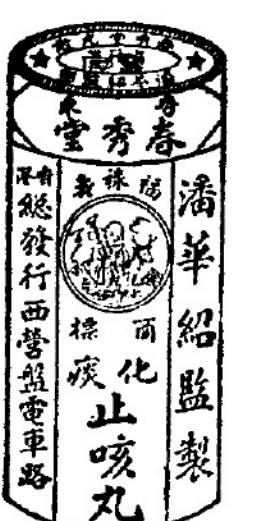 春秀堂
潘華紹監製
福祿壽
商標
化痰
止咳丸
香港
總發行西營盤電車路